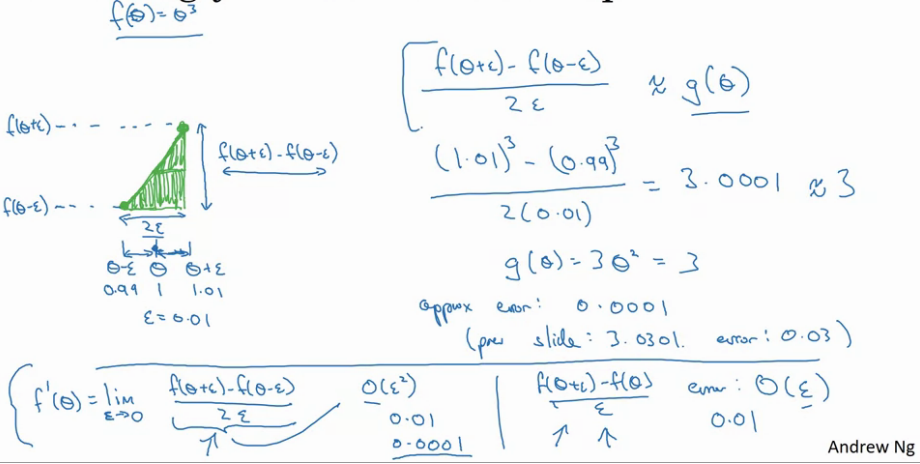 f(θ) = θ³
f(θ+ε) - f(θ-ε) / 2ε ≈ g(θ)
f(θ+ε)
f(θ+ε) - f(θ-ε)
(1.01)³ - (0.99)³ / 2(0.01) = 3.0001 ≈ 3
f(θ-ε)
2ε
θ-ε θ θ+ε
0.99 1 1.01
ε = 0.01
g(θ) = 3θ² = 3
approx error: 0.0001
(prev slide: 3.0301. error: 0.03)
f'(θ) = lim ε→0 f(θ+ε) - f(θ-ε) / 2ε O(ε²)
0.01
0.0001
f(θ+ε) - f(θ) / ε error: O(ε)
0.01
Andrew Ng